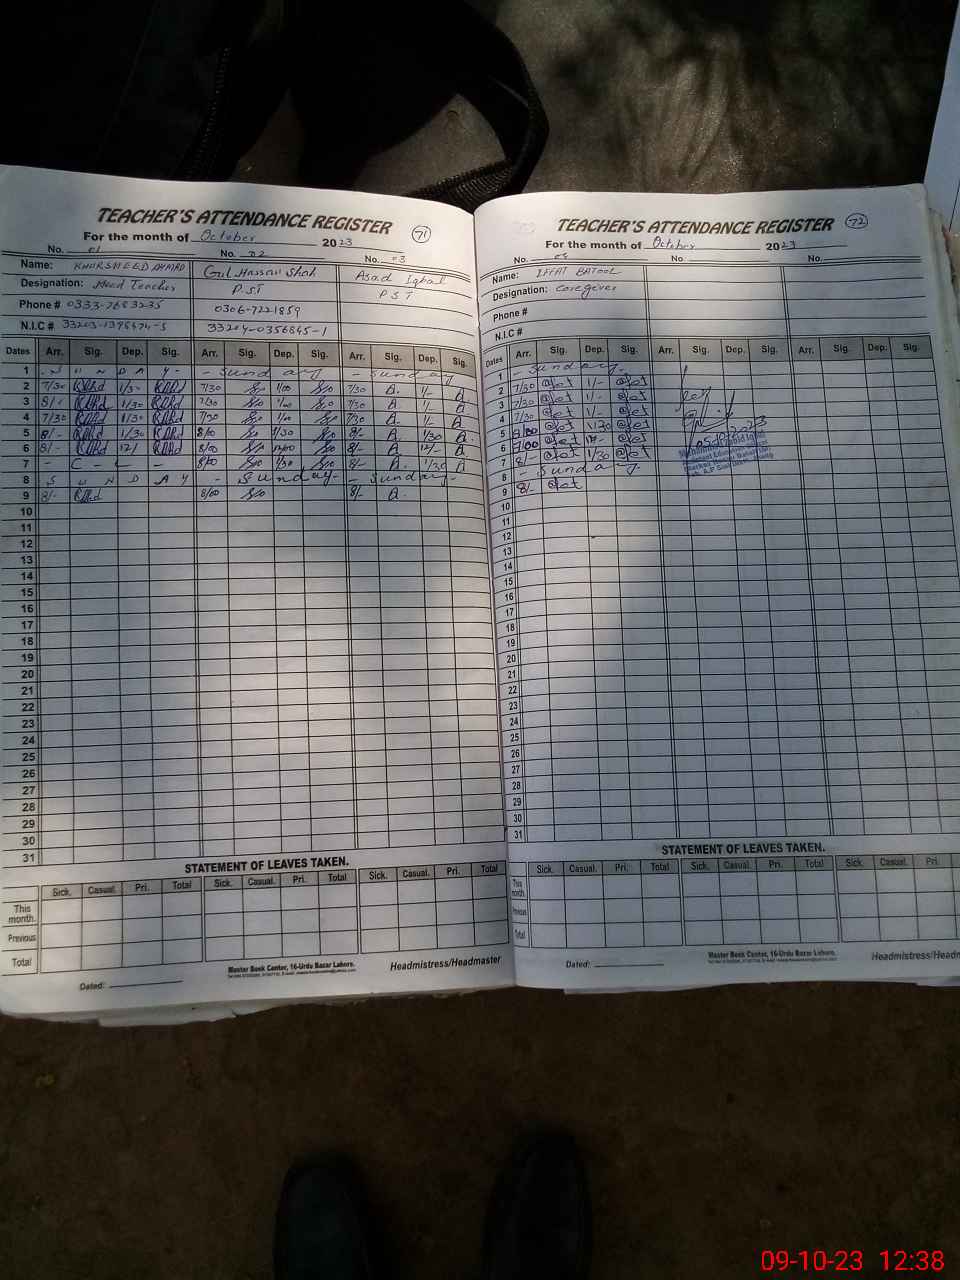 TEACHER'S ATTENDANCE REGISTER 71
For the month of October 2023
No. 01 No. 02 No. 03
Name: KHURSHEED AHMAD Gul Hassan Shah Asad Iqbal
Designation: Head Teacher P.S.T P.S.T
Phone # 0333-7683235 0306-7221859
N.I.C # 33204-0356845-1
Dates Arr. Sig. Dep. Sig. Arr. Sig. Dep. Sig. Arr. Sig. Dep. Sig.
1 - S U N D A Y - - Sunday - Sunday
2 7/30 1/30 7/30 1/00 7/30 A. 1/- A
3 8/- 1/30 7/30 1/00 7/30 A. 1/- A
4 7/30 1/30 7/30 1/00 7/30 A. 1/- A
5 8/- 1/30 8/00 1/30 8/- A. 1/30 A.
6 8/- 12/ 8/00 12/00 8/- A. 12/- A
7 - C - L - - 8/00 1/30 8/- A. 1/30 A
8 S U N D A Y - Sunday - - Sunday -
9 8/- 8/00 8/- A.
10
11
12
13
14
15
16
17
18
19
20
21
22
23
24
25
26
27
28
29
30
31
STATEMENT OF LEAVES TAKEN.
Sick. Casual. Pri. Total Sick. Casual. Pri. Total Sick. Casual. Pri. Total
This month.
Previous
Total
Master Book Center, 16-Urdu Bazar Lahore.
Dated: Headmistress/Headmaster
TEACHER'S ATTENDANCE REGISTER 72
For the month of October 2023
No. No. No.
Name: IFFAT BATOOL
Designation: Caregiver
Phone #
N.I.C #
Dates Arr. Sig. Dep. Sig. Arr. Sig. Dep. Sig. Arr. Sig. Dep. Sig.
1 - Sunday -
2 7/30 1/-
3 7/30 1/-
4 7/30 1/-
5 8/00 1/30
6 8/00 12/-
7 8/- 1/30
8 - Sunday -
9 8/-
10
11
12
13
14
15
16
17
18
19
20
21
22
23
24
25
26
27
28
29
30
31
STATEMENT OF LEAVES TAKEN.
Sick. Casual. Pri. Total Sick. Casual. Pri. Total Sick. Casual.
This month.
Previous
Total
Master Book Center, 16-Urdu Bazar Lahore.
Dated: Headmistress/Headm
09-10-23 12:38